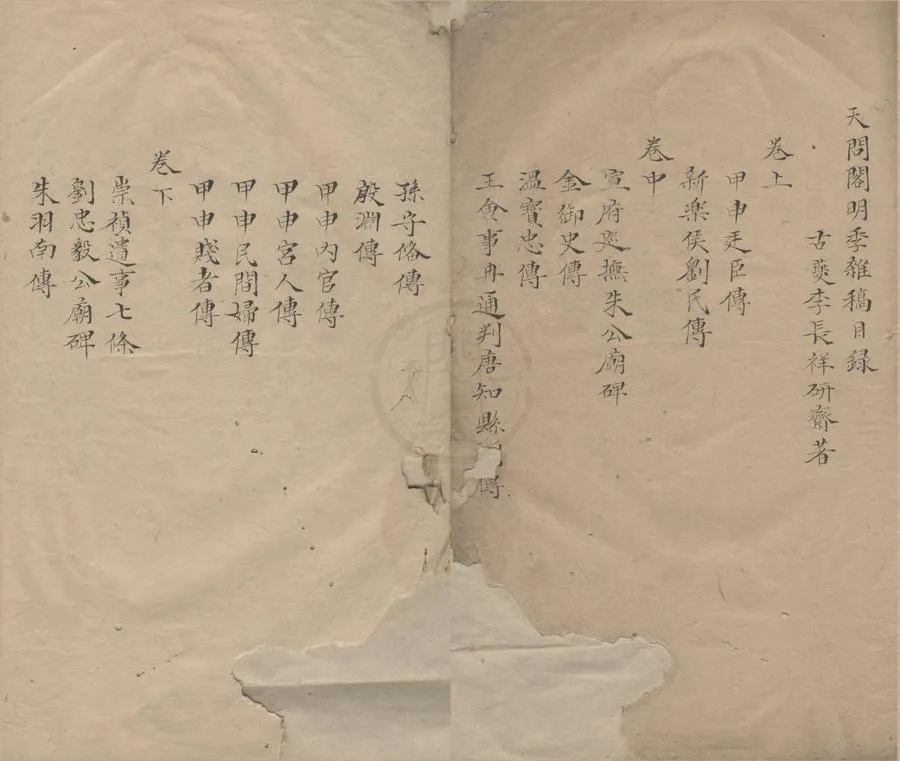 天問閣明季雜稿目錄
古夔李長祥研齋著
卷上
甲申廷臣傳
新樂侯劉氏傳
卷中
宣府廵撫朱公廟碑
金御史傳
溫寶忠傳
王僉事冉通判唐知縣傳
孫守俻傳
殷淵傳
甲申內官傳
甲申宮人傳
甲申民間婦傳
甲申賤者傳
卷下
崇禎遺事七條
劉忠毅公廟碑
朱羽南傳